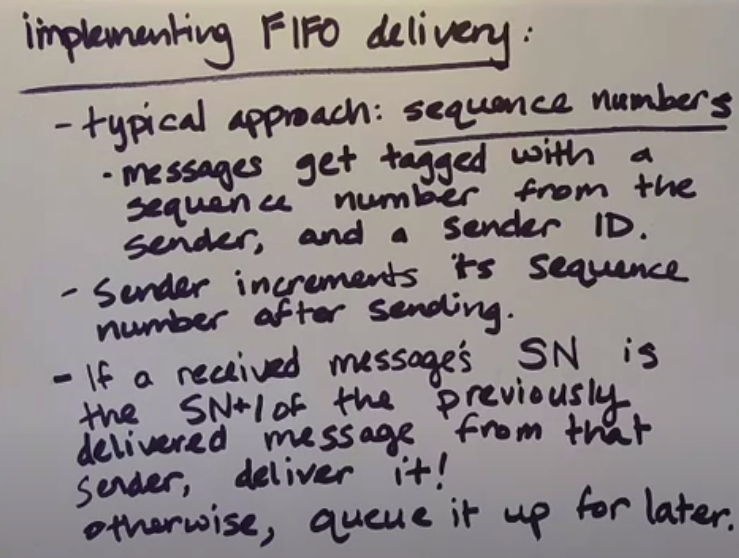 implementing FIFO delivery:
- typical approach: sequence numbers
• messages get tagged with a
sequence number from the
sender, and a sender ID.
- Sender increments its sequence
number after sending.
- If a received message's SN is
the SN+1 of the previously
delivered message from that
sender, deliver it!
otherwise, queue it up for later.